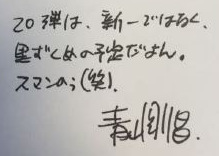 20弾は、新一ではなく、
黒ずくめの予定だよん。
スマンのう(笑).
青山剛昌